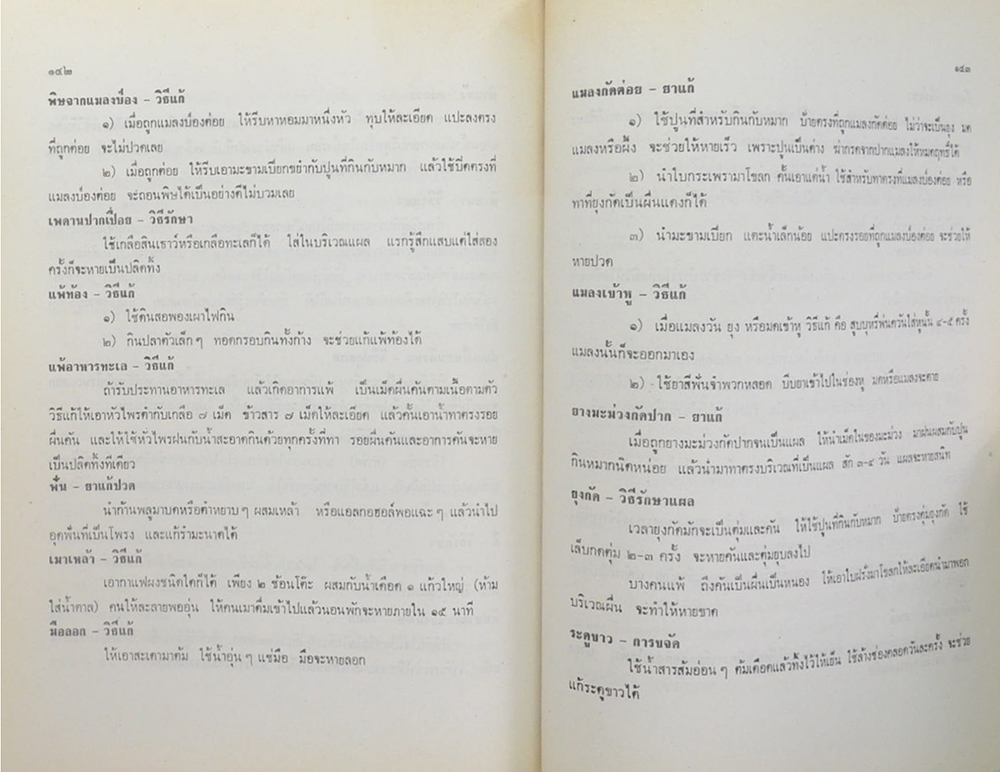 ๑๔๒
พิษจากแมลงป่อง – วิธีแก้
๑) เมื่อถูกแมลงป่องต่อย ให้รีบหาหอมมาหนึ่งหัว ทุบให้ละเอียด แปะลงตรง
ที่ถูกต่อย จะไม่ปวดเลย
๒) เมื่อถูกต่อย ให้รีบเอามะขามเปียกขยำกับปูนที่กินกับหมาก แล้วใช้ปิดตรงที่
แมลงป่องต่อย จะถอนพิษได้เป็นอย่างดีไม่บวมเลย
เพดานปากเปื่อย – วิธีรักษา
ใช้เกลือสินเธาว์หรือเกลือทะเลก็ได้ ใส่ในบริเวณแผล แรกรู้สึกแสบแต่ใส่สอง
ครั้งก็จะหายเป็นปลิดทิ้ง
แพ้ท้อง – วิธีแก้
๑) ใช้ดินสอพองเผาไฟกิน
๒) กินปลาตัวเล็กๆ ทอดกรอบกินทั้งก้าง จะช่วยแก้แพ้ท้องได้
แพ้อาหารทะเล – วิธีแก้
ถ้ารับประทานอาหารทะเล แล้วเกิดอาการแพ้ เป็นเม็ดผื่นคันตามเนื้อตามตัว
วิธีแก้ให้เอาหัวไพรตำกับเกลือ ๗ เม็ด ข้าวสาร ๗ เม็ดให้ละเอียด แล้วคั้นเอาน้ำทาตรงรอย
ผื่นคัน และให้ใช้หัวไพรฝนกับน้ำสะอาดกินด้วยทุกครั้งที่ทา รอยผื่นคันและอาการคันจะหาย
เป็นปลิดทิ้งทีเดียว
ฟัน – ยาแก้ปวด
นำก้านพลูมาบดหรือตำหยาบๆ ผสมเหล้า หรือแอลกอฮอล์พอแฉะๆ แล้วนำไป
อุดฟันที่เป็นโพรง และแก้รำมะนาดได้
เมาเหล้า – วิธีแก้
เอากาแฟผงชนิดใดก็ได้ เพียง ๒ ช้อนโต๊ะ ผสมกับน้ำเดือด ๑ แก้วใหญ่ (ห้าม
ใส่น้ำตาล) คนให้ละลายพออุ่น ให้คนเมาดื่มเข้าไปแล้วนอนพักจะหายภายใน ๑๕ นาที
มือลอก – วิธีแก้
ให้เอาสะเดามาต้ม ใช้น้ำอุ่นๆ แช่มือ มือจะหายลอก
๑๔๓
แมลงกัดต่อย – ยาแก้
๑) ใช้ปูนที่สำหรับกินกับหมาก ป้ายตรงที่ถูกแมลงกัดต่อย ไม่ว่าจะเป็นยุง มด
แมลงหรือผึ้ง จะช่วยให้หายเร็ว เพราะปูนเป็นด่าง ฆ่ากรดจากปากแมลงให้หมดฤทธิ์ได้
๒) นำใบกระเพรามาโขลก คั้นเอาแต่น้ำ ใช้สำหรับทาตรงที่แมลงป่องต่อย หรือ
ทาที่ยุงกัดเป็นผื่นแดงก็ได้
๓) นำมะขามเปียก แตะน้ำเล็กน้อย แปะตรงรอยที่ถูกแมลงป่องต่อย จะช่วยให้
หายปวด
แมลงเข้าหู – วิธีแก้
๑) เมื่อแมลงวัน ยุง หรือมดเข้าหู วิธีแก้ คือ สูบบุหรี่พ่นควันใส่หูนั้น ๔-๕ ครั้ง
แมลงนั้นก็จะออกมาเอง
๒) ใช้ยาสีฟันจำพวกหลอด บีบยาเข้าไปในช่องหู มดหรือแมลงจะตาย
ยางมะม่วงกัดปาก – ยาแก้
เมื่อถูกยางมะม่วงกัดปากจนเป็นแผล ให้นำเม็ดในของมะม่วง มาฝนผสมกับปูน
กินหมากนิดหน่อย แล้วนำมาทาตรงบริเวณที่เป็นแผล สัก ๓-๔ วัน แผลจะหายสนิท
ยุงกัด – วิธีรักษาแผล
เวลายุงกัดมักจะเป็นตุ่มและคัน ให้ใช้ปูนที่กินกับหมาก ป้ายตรงตุ่มยุงกัด ใช้
เล็บกดตุ่ม ๒-๓ ครั้ง จะหายคันและตุ่มยุบลงไป
บางคนแพ้ ถึงคันเป็นผื่นเป็นหนอง ให้เอาใบฝรั่งมาโขลกให้ละเอียดนำมาพอก
บริเวณผื่น จะทำให้หายขาด
ระดูขาว – การขจัด
ใช้น้ำสารส้มอ่อนๆ ต้มเดือดแล้วทิ้งไว้ให้เย็น ใช้ล้างช่องคลอดวันละครั้ง จะช่วย
แก้ระดูขาวได้